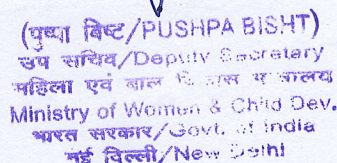 (पुष्पा बिष्ट/PUSHPA BISHT)
उप सचिव/Deputy Secretary
महिला एवं बाल विकास मंत्रालय
Ministry of Women & Child Dev.
भारत सरकार/Govt. of India
नई दिल्ली/New Delhi